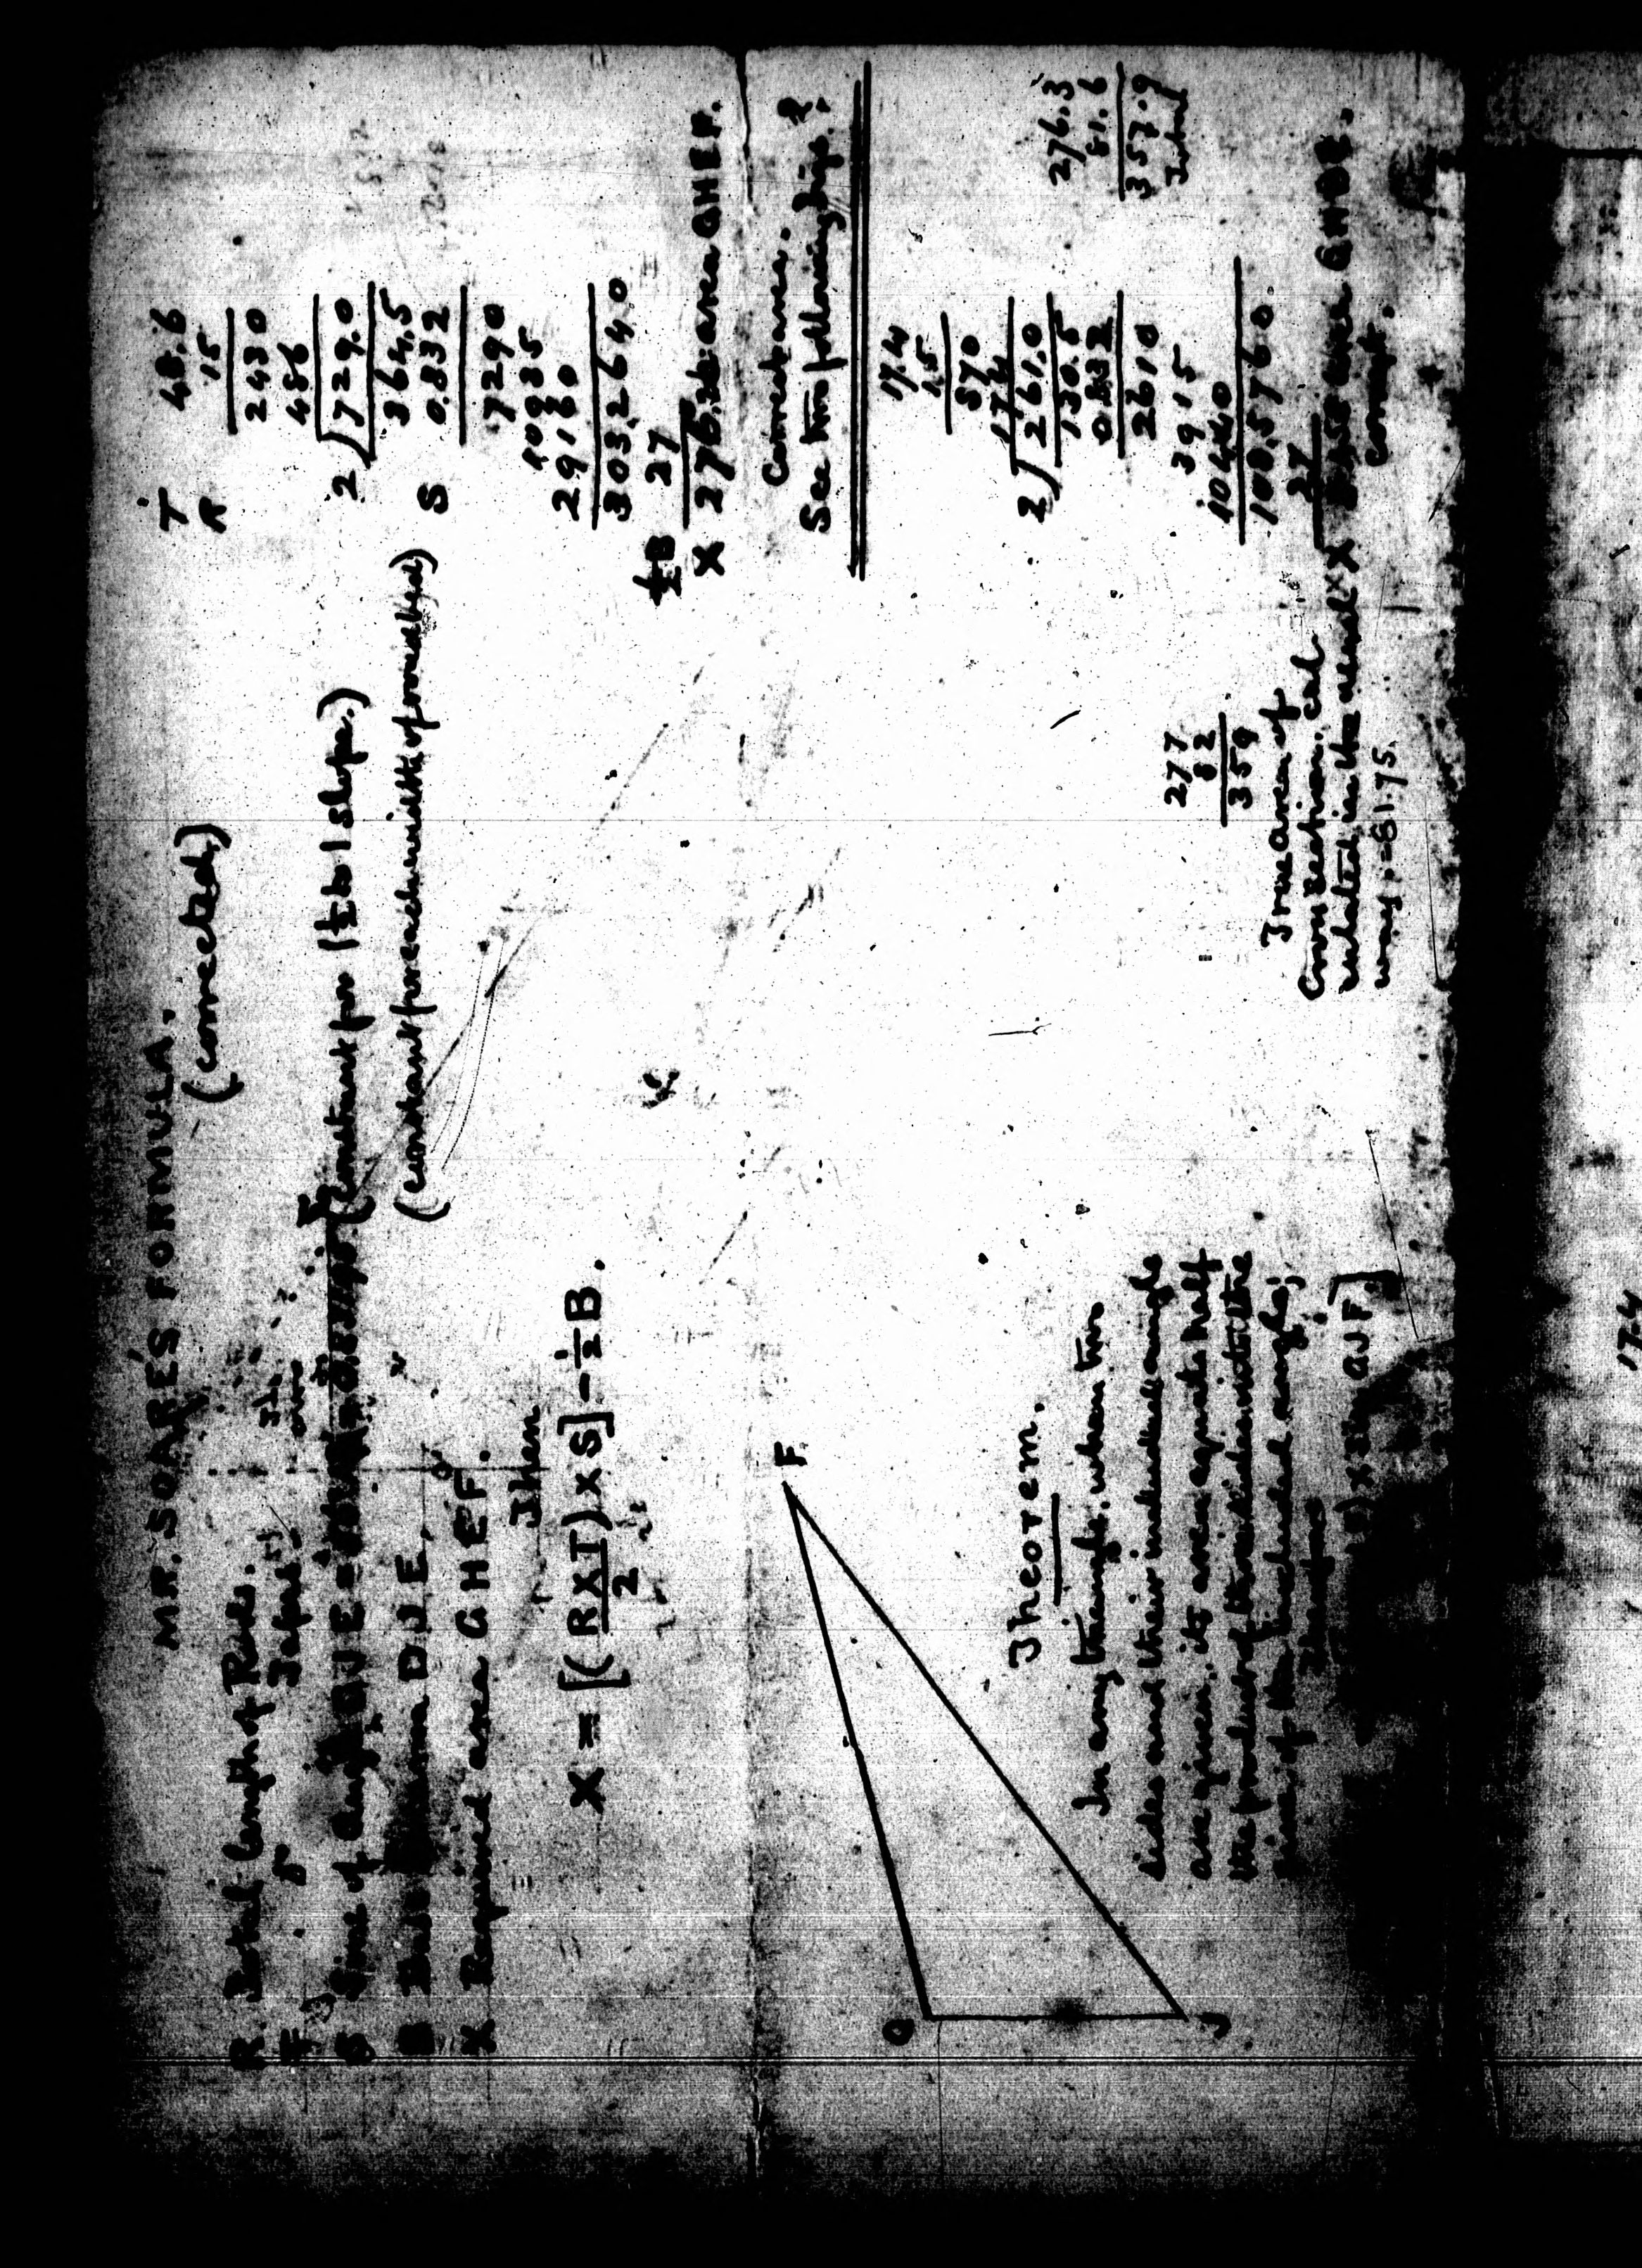 MR. SOARÉS FORMULA.
(corrected)
R. Total length of Rule.
T Tape
S Sine of angle GJE (constant for 1½ to 1 slope.)
B DJE. (constant for each width of formation bed)
X Required area GHEF.
Then
X = [(RXT)XS] - ½B.
2
T 48.6
R 15
2430
486
2)729.0
364.5
S 0.832
7290
10935
29160
303.2640
½B 27
X 276.26 area GHEF.
Correct area.
See two following pages?
G
F
J
Theorem.
In any triangle, when two
sides and their included angle
are given, its area equals half
the product of the sides into the
sine of the included angle;
Therefore
GJF]
17.4
15
870
174
2)261.0
130.5
0.832
2610
3915
10440
108.5760
27
X area GHEF.
Correct.
276.3
81.6
357.9
Total
277
82
359
True area of
Cross section, cal
culated in the usual
way, = 81.75.
17.4